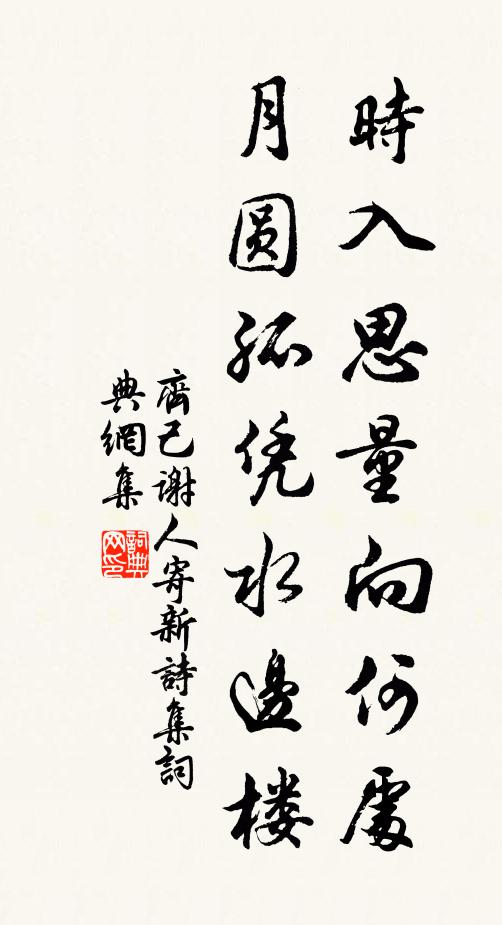 時入思量向何處
月圆孤凭水邊楼
齊己谢人寄新詩集詞
典網集
詞典网印